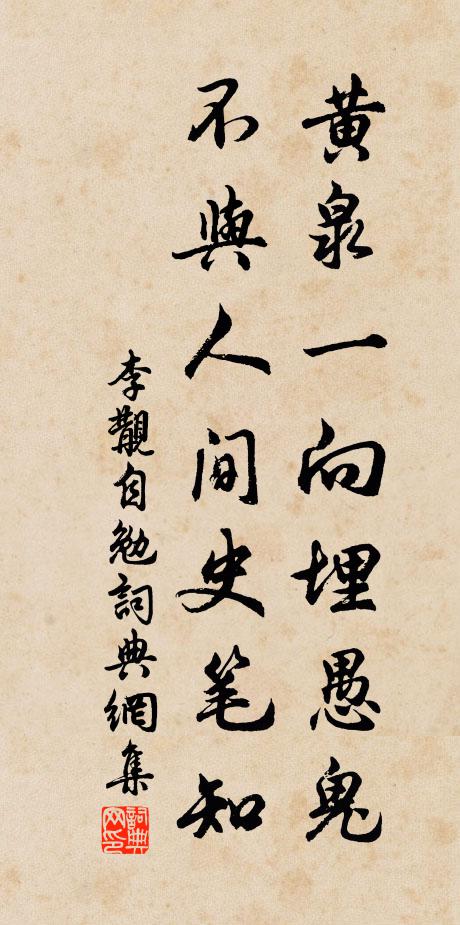 黄泉一向埋愚鬼
不與人間史笔知
李觏自勉詞典網集
詞典网印